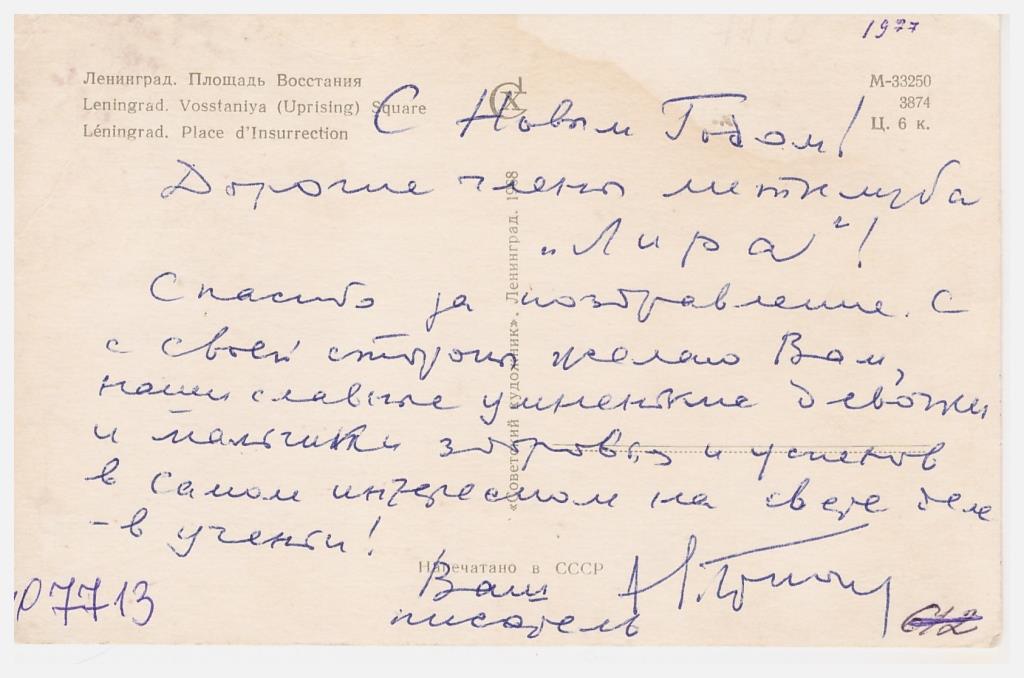 1977
Ленинград. Площадь Восстания
Leningrad. Vosstaniya (Uprising) Square
Léningrad. Place d'Insurrection
М-33250
3874
Ц. 6 к.
С Новым Годом!
Дорогие члены литклуба
„Лира"!
Спасибо за поздравление. С
с своей стороны желаю Вам,
наши славные умненькие девочки
и мальчики здоровья и успехов
в самом интересном на свете деле
- в учении!
Ваш
писатель
«Советский художник». Ленинград. 1968
Напечатано в СССР
р7713